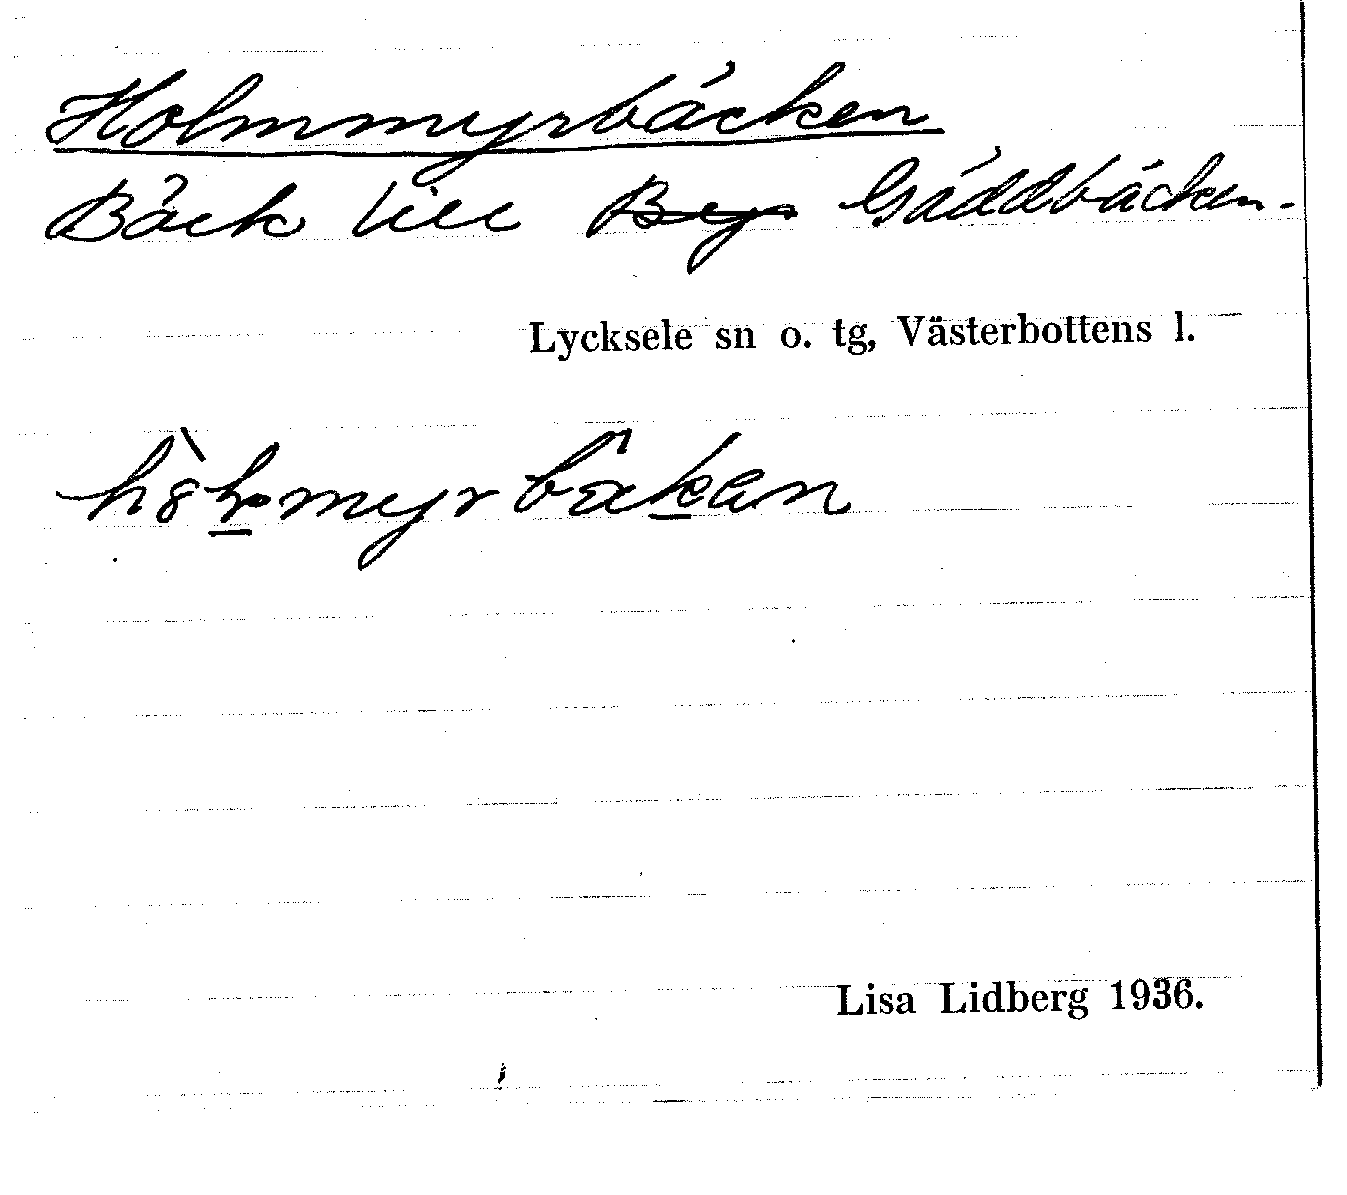 Holmmyrbäcken
Bäck till Gäddbäcken.
Lycksele sn o. tg, Västerbottens l.
Lisa Lidberg 1936.